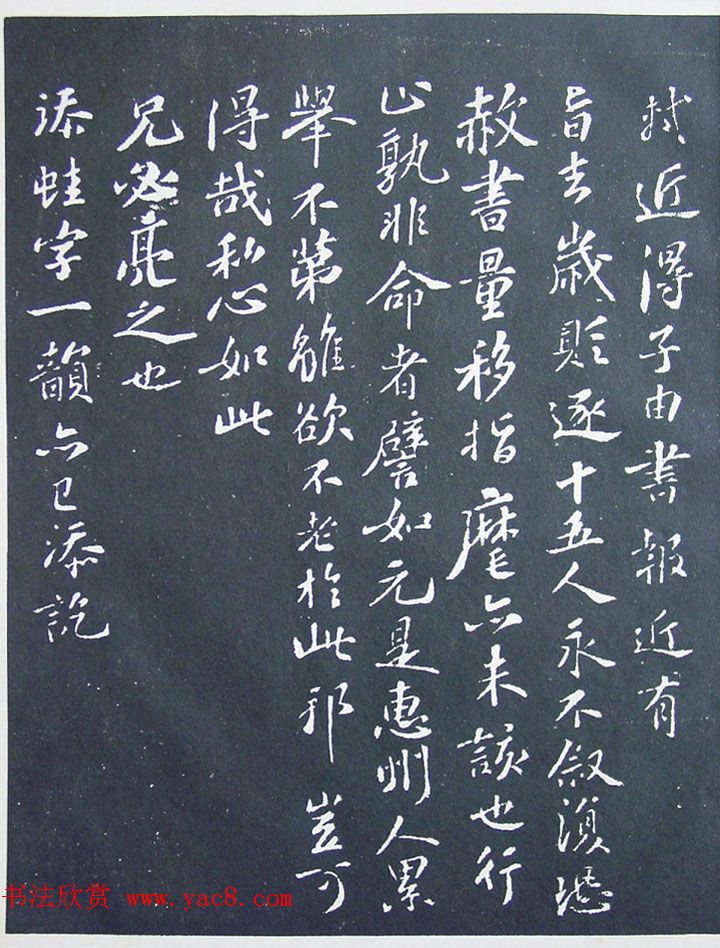 軾近得子由書報近有
旨去歲貶逐十五人永不叙復恐
赦書量移指麾亦未該也行
止孰非命者譬如元是惠州人累
舉不第雖欲不老於此邪豈可
得哉私心如此
兄必亮之也
添蛙字一韻亦已添訖
书法欣赏 www.yac8.com